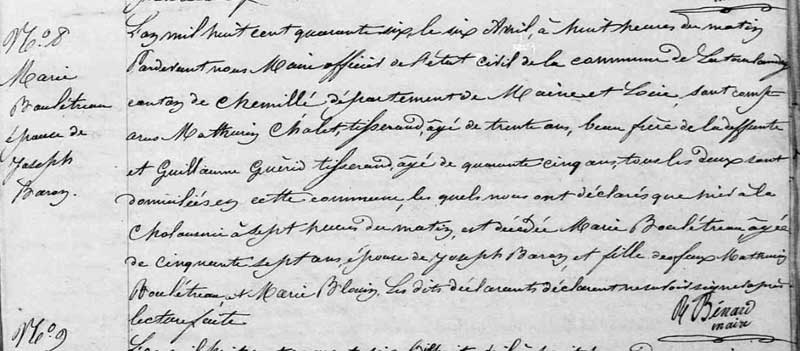 N.° 8
Marie
Boulétreau
épouce de
Joseph
Baron.
L'an mil huit cent quarante six, le six Avril, à huit heures du matin
Pardevant nous Maire officier de l'état civil de la commune de Latourlandry
canton de Chemillé, département de Maine et Loire, sont comp
arus Mathurin Cholet, tisserand, âgé de trente ans, beau frère de la deffunte
et Guillaume Guérid tisserand, âgé de quarante cinq ans, tous les deux sont
domiciliés en cette commune, les quels nous ont déclarés que hier à la
à sept heures du matin, est décédée Marie Boulétreau, âgée
de cinquante sept ans, épouce de Joseph Baron, et fille de feux Mathurin
Boulétreau et Marie Blouin, Les dits déclarants déclarent ne savoir signer après
lecture faite
R Bénard
maire
N.° 9